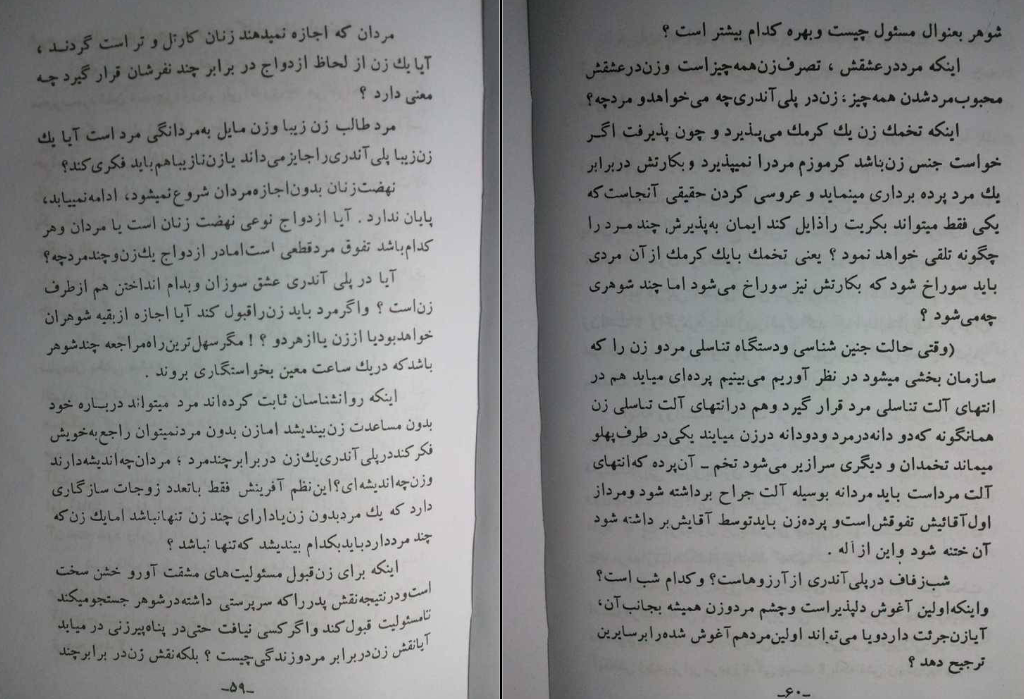 مردان که اجازه نمیدهند زنان کارتل و تر است گردند،
آیا یك زن از لحاظ ازدواج در برابر چند نفرشان قرار گیرد چه
معنی دارد ؟
مرد طالب زن زیبا وزن مایل به مردانگی مرد است آیا یك
زن زیبا پلی آندری را جایز می‌داند یا زن نازیبا هم باید فکری کند؟
نهضت زنان بدون اجازه مردان شروع نمیشود، ادامه نمییابد،
پایان ندارد . آیا ازدواج نوعی نهضت زنان است یا مردان وهر
کدام باشد تفوق مرد قطعی است اما در ازدواج یك زن و چند مرد چه؟
آیا در پلی آندری عشق سوزان وبدام انداختن هم از طرف
زن است ؟ واگر مرد باید زن را قبول کند آیا اجازه از بقیه شوهران
خواهد بود یا از زن یا از هر دو ؟ ! مگر سهل ترین راه مراجعه چند شوهر
باشد که در یك ساعت معین بخواستگاری بروند .
اینکه روانشناسان ثابت کرده‌اند مرد میتواند درباره خود
بدون مساعدت زن بیندیشد اما زن بدون مرد نمیتوان راجع به خویش
فکر کند در پلی آندری یك زن در برابر چند مرد ؛ مردان چه اندیشه دارند
وزن چه اندیشه‌ای؟ این نظم آفرینش فقط با تعدد زوجات سازگاری
دارد که یك مرد بدون زن یا دارای چند زن تنها نباشد اما یك زن که
چند مرد دارد باید بکدام بیندیشد که تنها نباشد ؟
اینکه برای زن قبول مسئولیت‌های مشقت آور و خشن سخت
است و در نتیجه نقش پدر را که سرپرستی داشته در شوهر جستجو میکند
تا مسئولیت قبول کند و اگر کسی نیافت حتی در پناه پیرزنی در میاید
آیا نقش زن در برابر مرد و زندگی چیست ؟ بلکه نقش زن در برابر چند
ـ۵۹ـ
شوهر بعنوال مسئول چیست وبهره کدام بیشتر است ؟
اینکه مرد در عشقش ، تصرف زن همه چیز است وزن در عشقش
محبوب مرد شدن همه چیز، زن در پلی آندری چه می‌خواهد و مرد چه؟
اینکه تخمك زن یك کرمك می‌پذیرد و چون پذیرفت اگر
خواست جنس زن باشد کرموزم مرد را نمیپذیرد و بکارتش در برابر
یك مرد پرده برداری مینماید و عروسی کردن حقیقی آنجاست که
یکی فقط میتواند بکریت را ذایل کند ایمان به پذیرش چند مرد را
چگونه تلقی خواهد نمود ؟ یعنی تخمك با یك کرمك از آن مردی
باید سوراخ شود که بکارتش نیز سوراخ می‌شود اما چند شوهری
چه می‌شود ؟
(وقتی حالت جنین شناسی ودستگاه تناسلی مردو زن را که
سازمان بخشی میشود در نظر آوریم می‌بینیم پرده‌ای میاید هم در
انتهای آلت تناسلی مرد قرار گیرد وهم در انتهای آلت تناسلی زن
همانگونه که دو دانه در مرد و دودانه در زن میایند یکی در طرف پهلو
میماند تخمدان و دیگری سرازیر می‌شود تخم ـ آن پرده که انتهای
آلت مرد است باید مردانه بوسیله آلت جراح برداشته شود ومرد از
اول آقائیش تفوقش است و پرده زن باید توسط آقایش بر داشته شود
آن ختنه شود واین ازاله .
شب زفاف در پلی آندری از آرزوهاست؟ وکدام شب است؟
واینکه اولین آغوش دلپذیر است وچشم مردوزن همیشه بجانب آن،
آیا زن جرئت دارد ویا می‌تواند اولین مرد هم آغوش شده را بر سایرین
ترجیح دهد ؟
ـ۶۰ـ